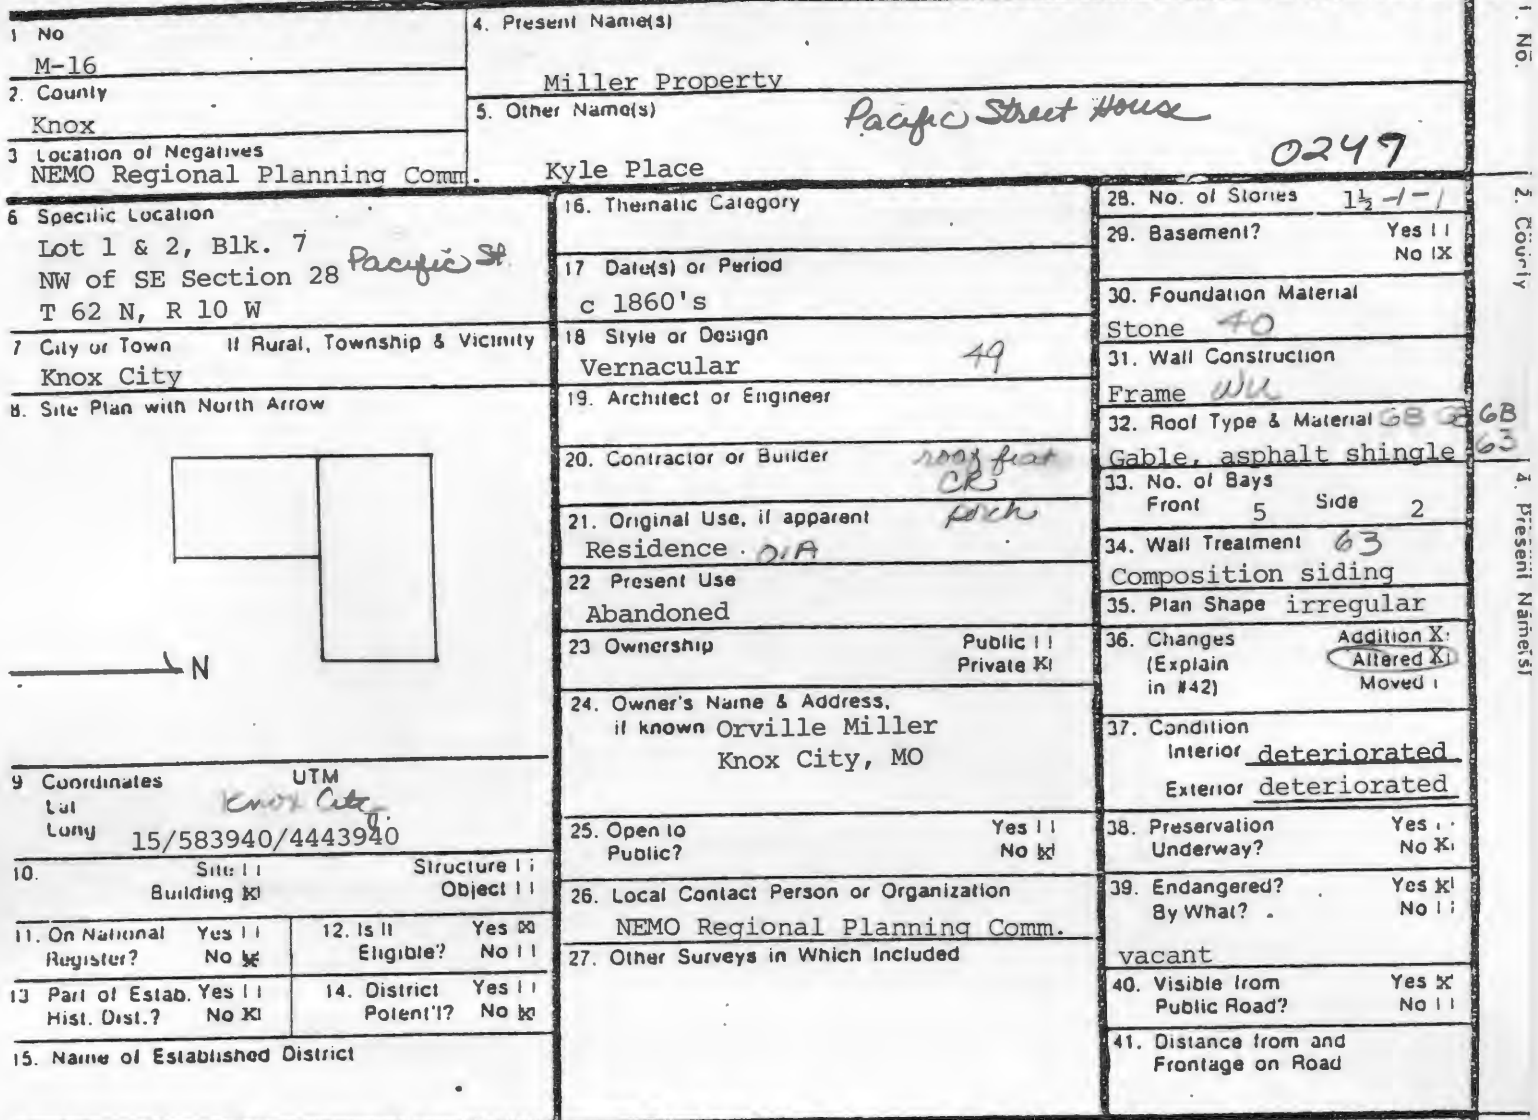 1 No
M-16
2. County
Knox
3 Location of Negatives
NEMO Regional Planning Comm.
4. Present Name(s)
Miller Property
5. Other Name(s)
Pacific Street House
0247
Kyle Place
6 Specific Location
Lot 1 & 2, Blk. 7
NW of SE Section 28 Pacific St.
T 62 N, R 10 W
7 City or Town If Rural, Township & Vicinity
Knox City
8. Site Plan with North Arrow
N
9 Coordinates UTM
Lat Knox City
Long 15/583940/4443940
10. Site Structure
Building X Object
11. On National Yes
Register? No X
12. Is It Yes X
Eligible? No
13 Part of Estab. Yes
Hist. Dist.? No X
14. District Yes
Potent'l? No X
15. Name of Established District
16. Thematic Category
17 Date(s) or Period
c 1860's
18 Style or Design
Vernacular 49
19. Architect or Engineer
20. Contractor or Builder
CR
porch
21. Original Use, if apparent
Residence 01A
22 Present Use
Abandoned
23 Ownership Public
Private X
24. Owner's Name & Address,
if known Orville Miller
Knox City, MO
25. Open to Yes
Public? No X
26. Local Contact Person or Organization
NEMO Regional Planning Comm.
27. Other Surveys in Which Included
28. No. of Stories 1½ -1-1
29. Basement? Yes
No X
30. Foundation Material
Stone 40
31. Wall Construction
Frame WU
32. Roof Type & Material GB GB GB
Gable, asphalt shingle 63
33. No. of Bays
Front 5 Side 2
34. Wall Treatment 63
Composition siding
35. Plan Shape irregular
36. Changes Addition X
(Explain Altered X
in #42) Moved
37. Condition
Interior deteriorated
Exterior deteriorated
38. Preservation Yes
Underway? No X
39. Endangered? Yes X
By What? No
vacant
40. Visible from Yes X
Public Road? No
41. Distance from and
Frontage on Road
1. No.
2. County
4. Present Name(s)